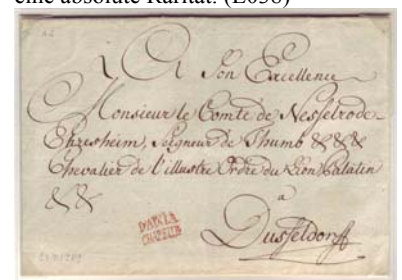 eine absolute Rarität. (E038)
A Son Excellence
Monsieur le Comte de Nesselrode-
Ehresheim, Seigneur de Thumb &&&
Chevalier de l'illustre Ordre du Lion Palatin
&&
a
Dusseldorff
D'AIX.LA
CHAPELLE